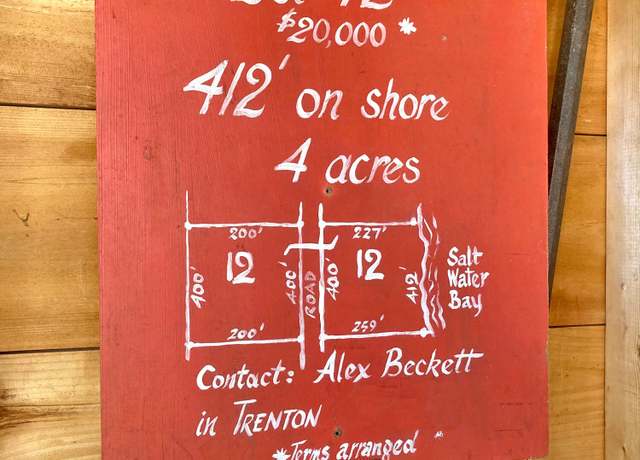 $20,000 *
412' on shore
4 acres
200' 227'
12 12
400' 400' ROAD 400' 412'
Salt
Water
Bay
200' 259'
Contact: Alex Beckett
in TRENTON
*Terms arranged